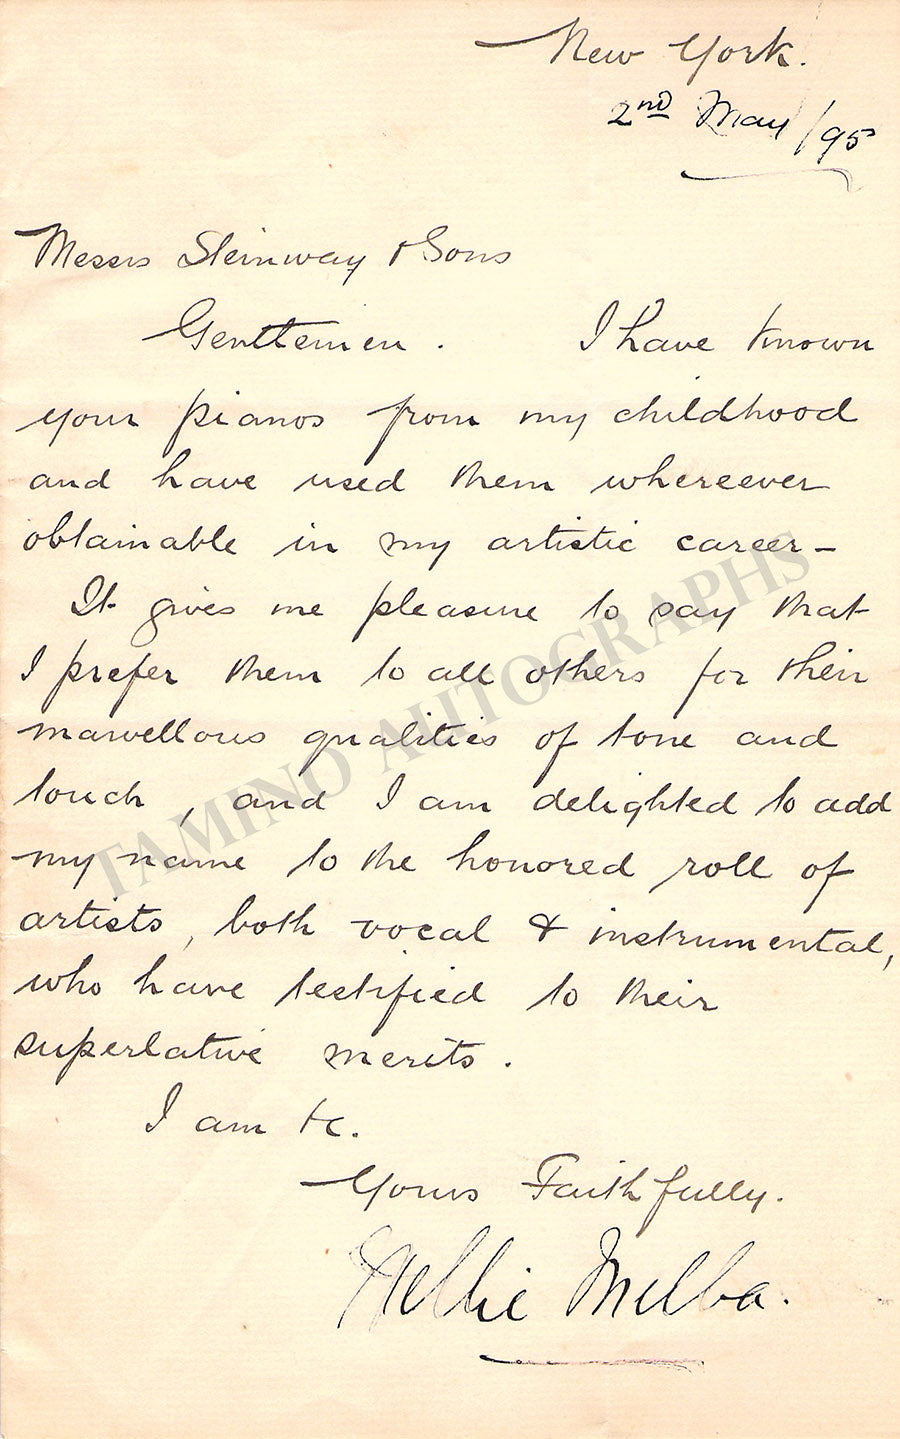 New York.
2nd May /95
Messrs Steinway & Sons
Gentlemen. I have known
your pianos from my childhood
and have used them whereever
obtainable in my artistic career–
It gives me pleasure to say that
I prefer them to all others for their
marvellous qualities of tone and
touch, and I am delighted to add
my name to the honored roll of
artists, both vocal & instrumental,
who have testified to their
superlative merits.
I am &c.
Yours Faithfully.
Nellie Melba.
TAMINO AUTOGRAPHS